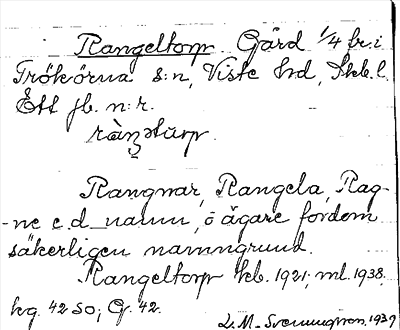 Rangeltorp Gård 1/4 fr. i
Trökörna s:n, Viste hd, Skb. l.
Ett jb. n:r.
Rangnar, Rangela, Rag-
ne e.d. namn, ö ägare fordom
säkerligen namngrund.
Rangeltorp kb. 1921; ml. 1938,
kg. 42 SO; G. 42.
L. M. Svenungsson. 1939